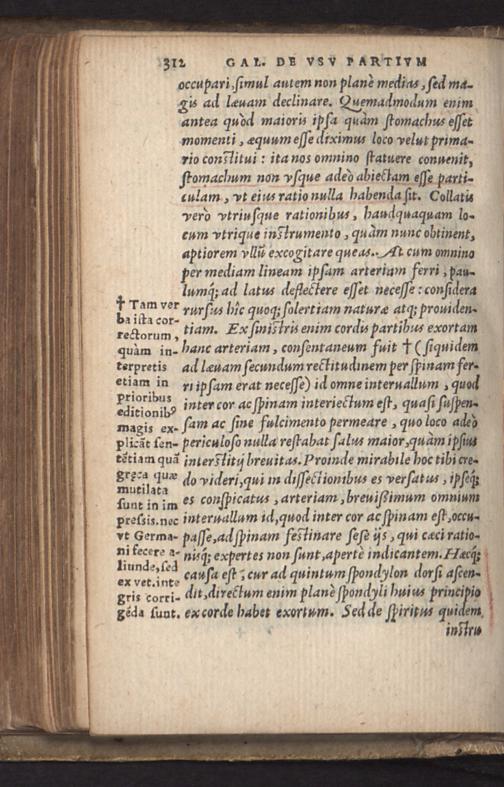 312 GAL. DE VSV PARTIVM
occupari, simul autem non planè medias, sed ma-
gis ad læuam declinare. Quemadmodum enim
antea quòd maioris ipsa quàm stomachus esset
momenti, æquum esse diximus loco velut prima-
rio constitui : ita nos omnino statuere conuenit,
stomachum non vsque adeò abiectam esse parti-
culam, vt eius ratio nulla habenda sit. Collatis
verò vtriusque rationibus, haudquaquam lo-
cum vtrique instrumento, quàm nunc obtinent,
aptiorem vllũ excogitare queas. At cum omnino
per mediam lineam ipsam arteriam ferri, pau-
lumq; ad latus deflectere esset necesse : considera
rursus hîc quoq; solertiam naturæ atq; prouiden-
tiam. Ex sinistris enim cordis partibus exortam
hanc arteriam, consentaneum fuit † (siquidem
ad læuam secundum rectitudinem per spinam fer-
ri ipsam erat necesse) id omne interuallum, quod
inter cor ac spinam interiectum est, quasi suspen-
sam ac sine fulcimento permeare, quo loco adeò
periculoso nulla restabat salus maior, quàm ipsius
interstitij breuitas. Proinde mirabile hoc tibi cre-
do videri, qui in dissectionibus es versatus, ipseq;
es conspicatus, arteriam, breuißimum omnium
interuallum id, quod inter cor ac spinam est, occu-
passe, ad spinam festinare sese ijs, qui cæci ratio-
nisq; expertes non sunt, apertè indicantem. Hæcq;
causa est, cur ad quintum spondylon dorsi ascen-
dit, directum enim planè spondyli huius principio
ex corde habet exortum. Sed de spiritus quidem
instru
† Tam ver
ba ista cor-
rectorum,
quàm in-
terpretis
etiam in
prioribus
editionibꝰ
magis ex-
plicãt sen-
tẽtiam quã
gręca quæ
mutilata
sunt in im
pressis. nec
vt Germa-
ni fecere a-
liunde, sed
ex vet. inte
gris corri-
gẽda sunt.